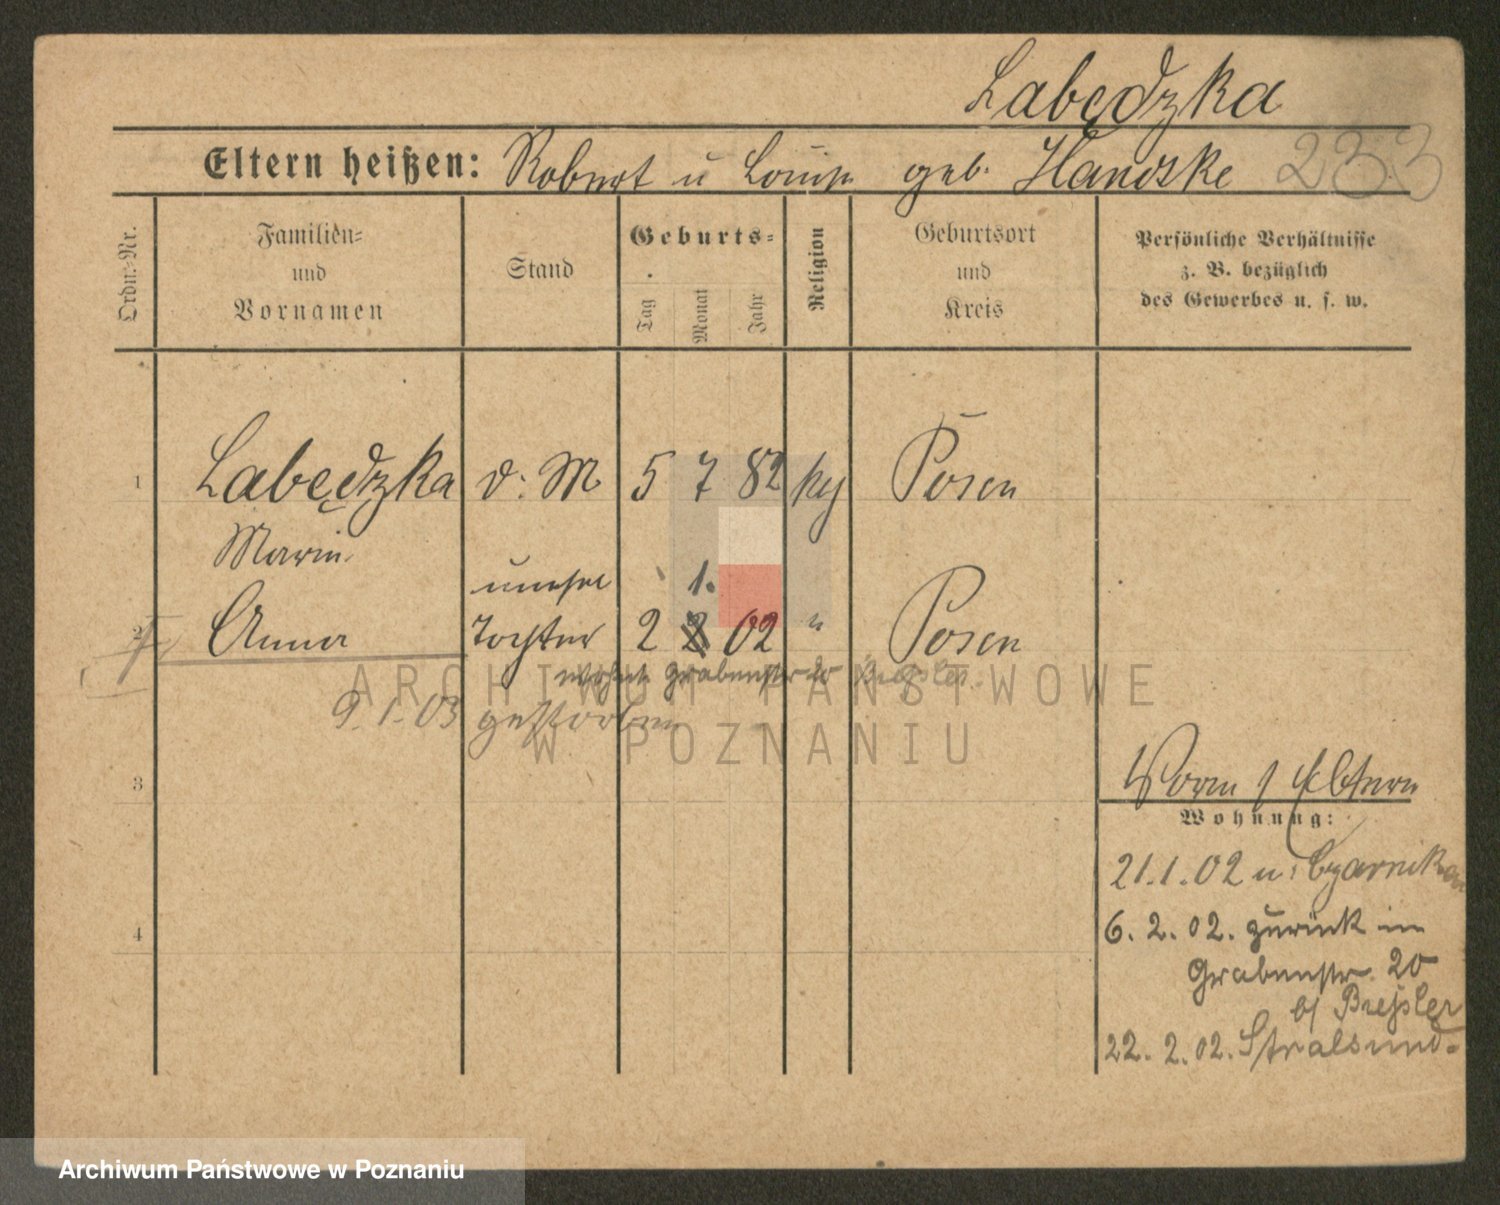 Łabędzka
Eltern heißen: Robert u Louise geb. Handske 233
Ordn.-Nr.
Familien-
und
Vornamen
Stand
Geburts-
Tag
Monat
Jahr
Religion
Geburtsort
und
Kreis
Persönliche Verhältnisse
z. B. bezüglich
des Gewerbes u. s. w.
1 Łabędzka d. M 5 7 82 Posen
Marie
unehel 1.
2 Anna Tochter 2 2 02 " Posen
wohnt Grabenstr 20 Bressler
9.1.03 gestorben
ARCHIWUM PAŃSTWOWE
W POZNANIU
3
Eltern
Wohnung:
21.1.02 n. Czarnikau
4
6. 2. 02. zurück in
Grabenstr. 20
b/ Bressler
22. 2. 02. Stralsund.
Archiwum Państwowe w Poznaniu